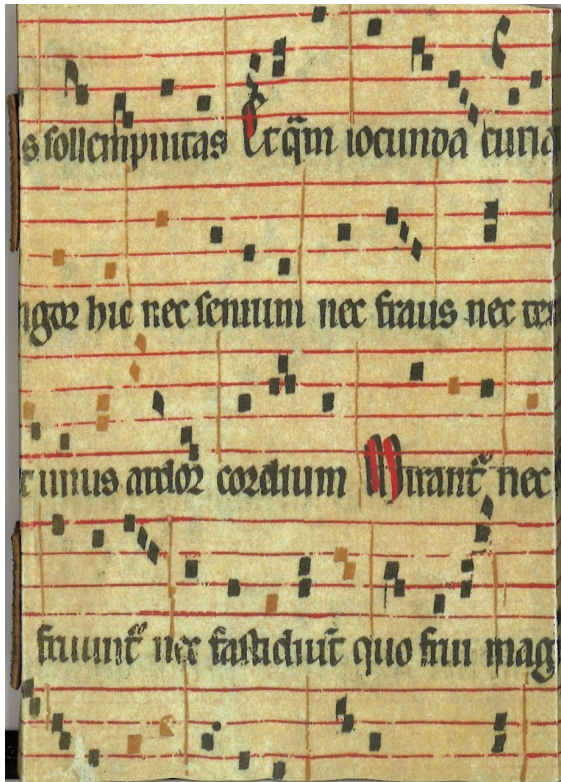 s sollempnitas Et q̄m iocunda curia
ngor hic nec senium nec fraus nec ter
t unus ardor cordium Mirant᷑ nec
fruunt᷑ nec fastidiūt quo frui mag